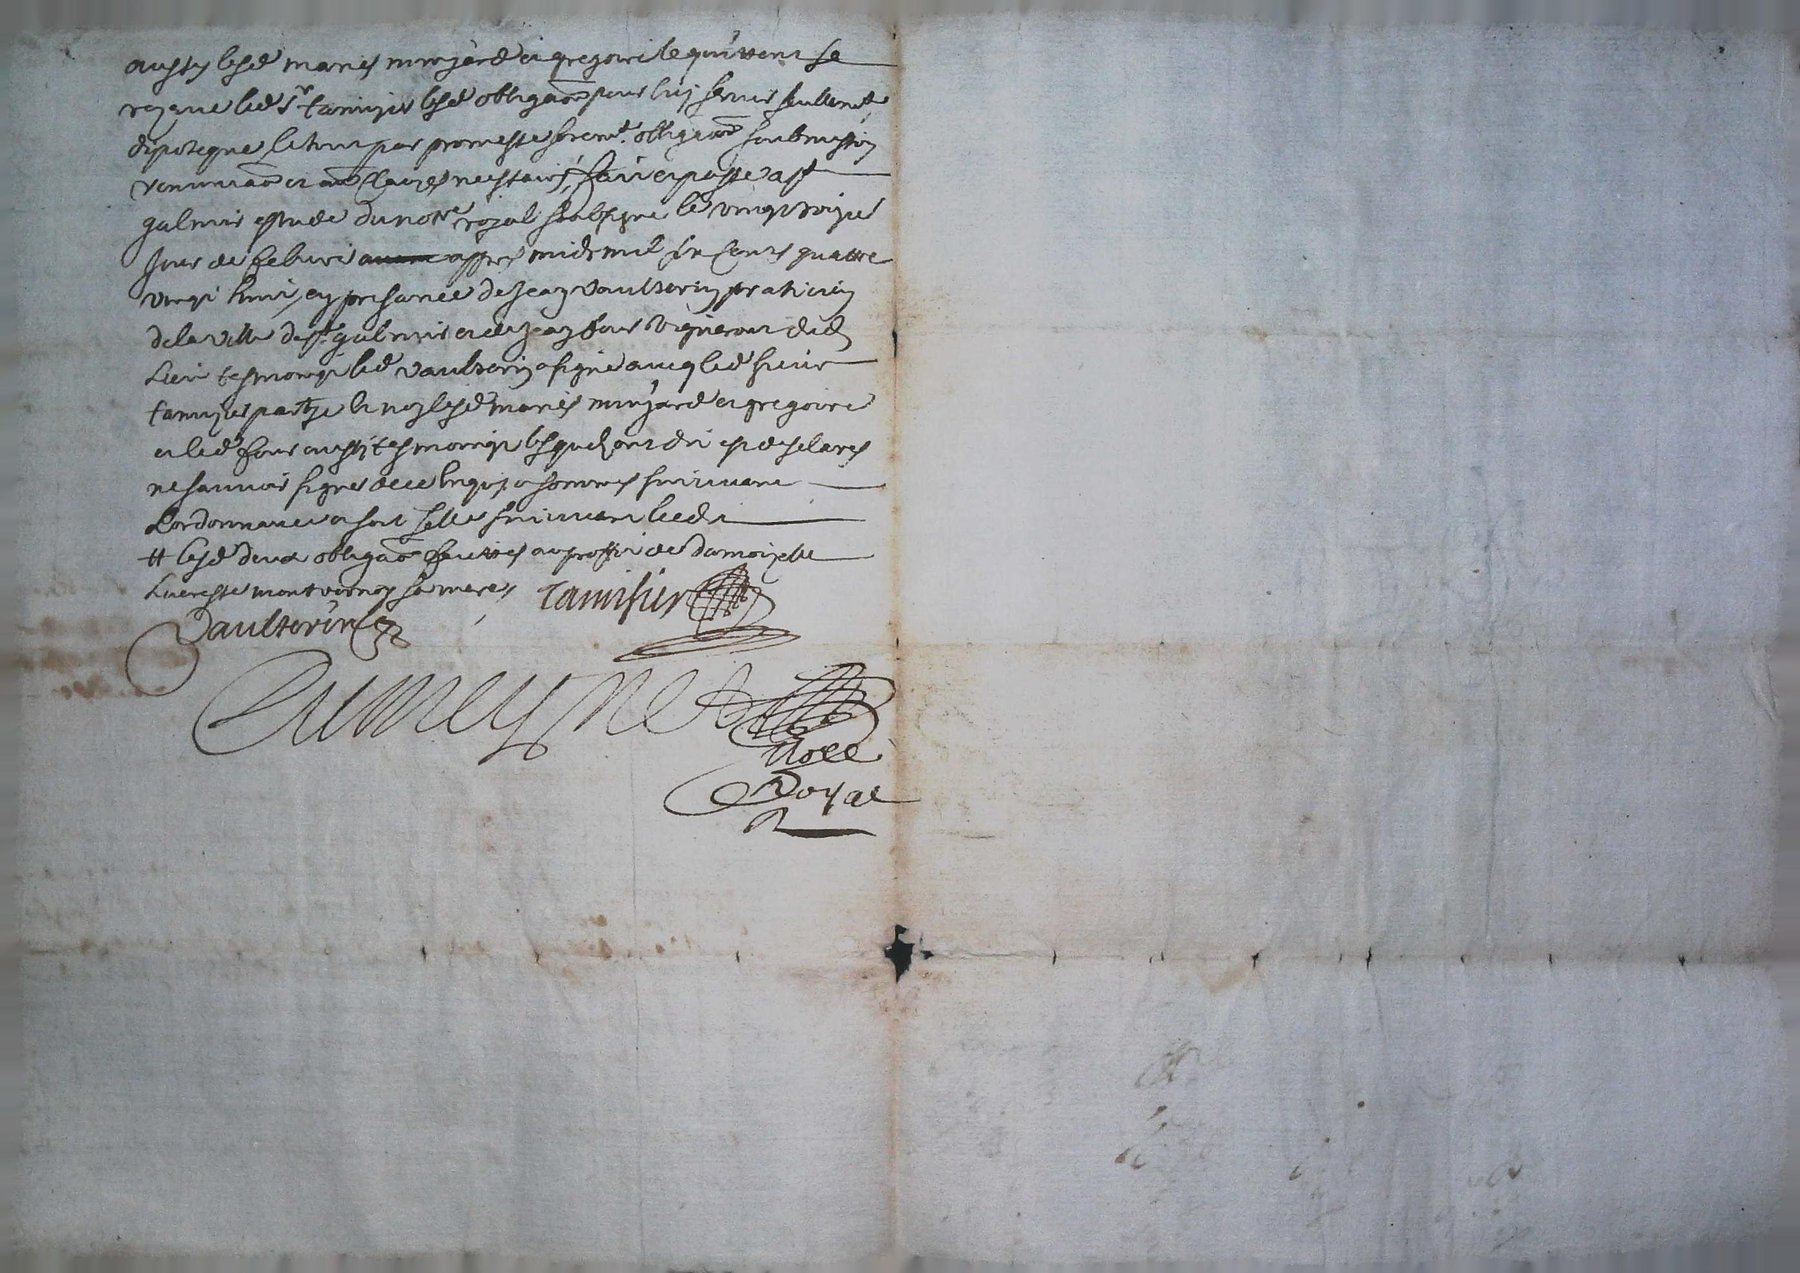 aussy lesd mariés minjard et gregoire le quittent se
reserve led sr tamizier lesd obligaon pour luy servir seullemt
dipoteque le tout par promesse sermt obligaon soubmission
renonciaon et au clauzes necessaires, faict et passé a st
galmier estude du notre royal soubsigne le vingt
Jour de febvrier apprès midy mil six cents quattre
vingt huict en presance de Jean vaultorin praticien
de la ville de st galmier et de Jean four vigneron dud
Lieu tesmoingt led vaultorin a signé avecq led sieur
tamizier partye et non lesd mariés minjard et gregoire
et led four aussy tesmoingt lesquels ont dit et desclarés
ne scavoir signer de ce enquis et sommes suivivant
Lordonnance et soit sellé suivivant ledit
# lesd deux obligaon faittes au proffit de damoizelle
Lucresse montvernoy sa mere
Tamisier
Vaultorin
notre
Royal